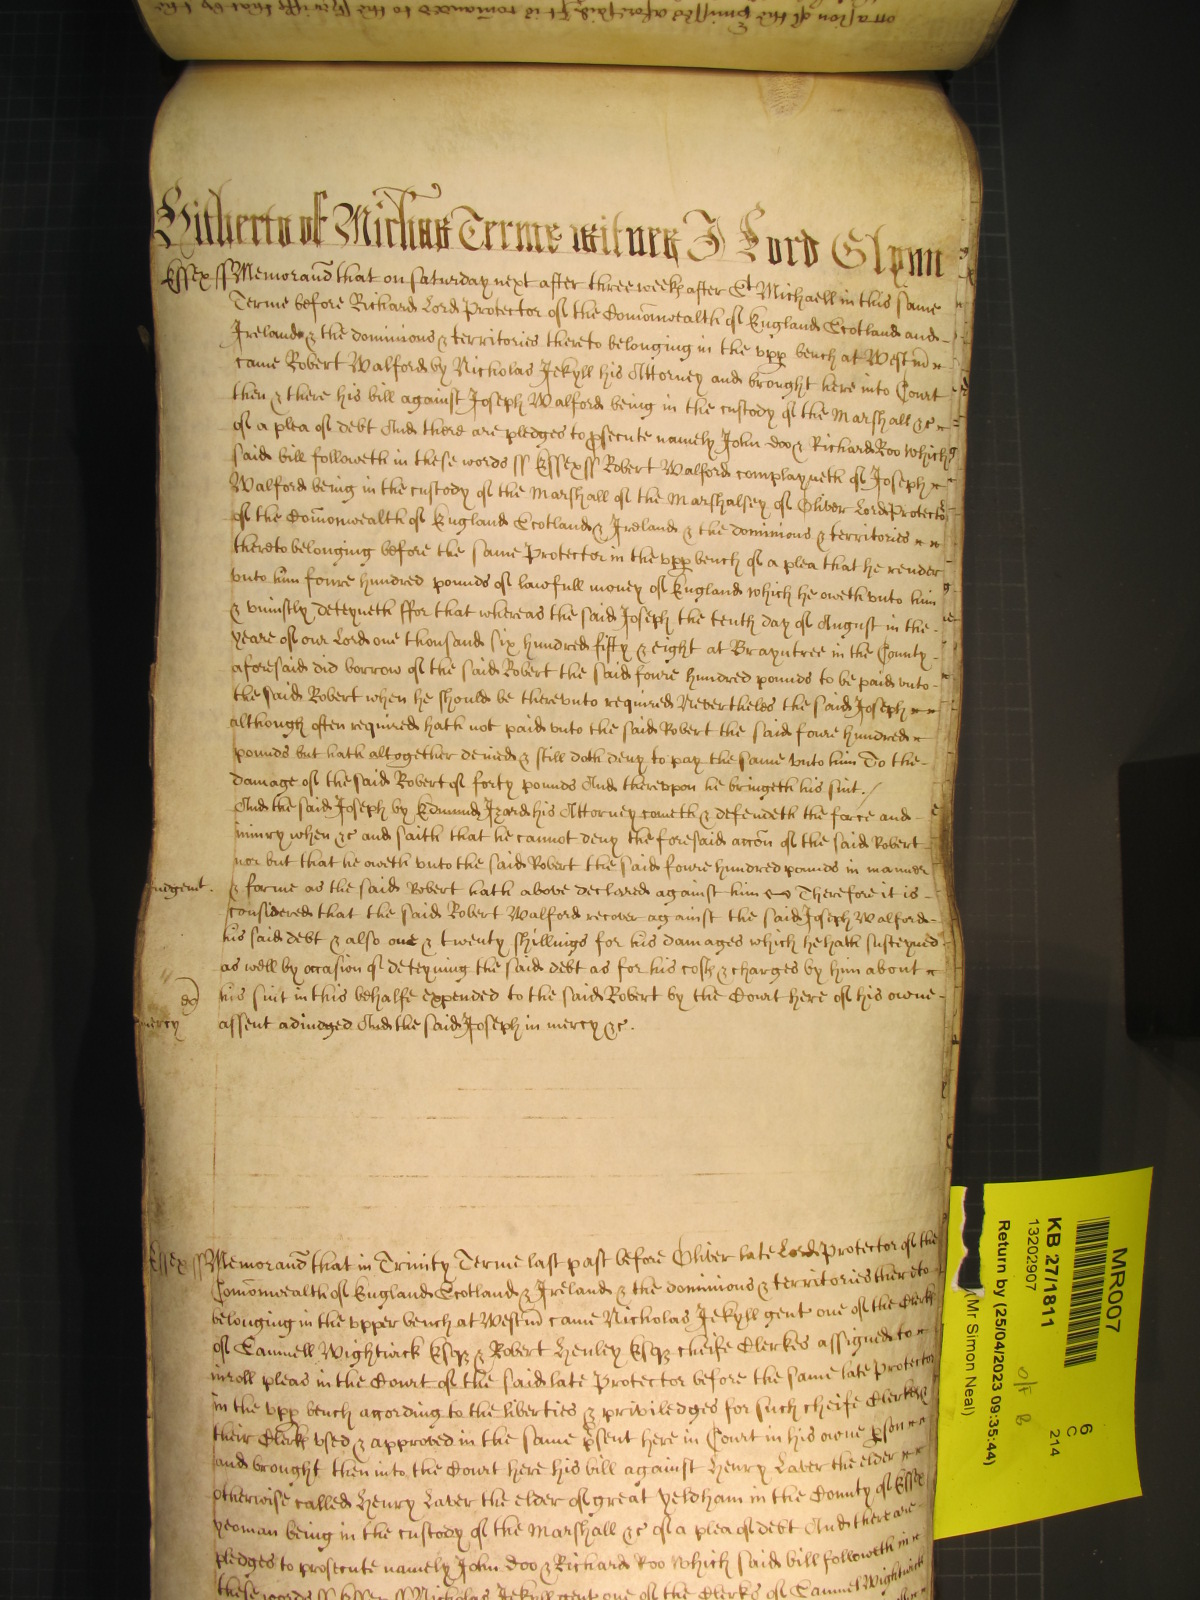 occasion of the pmisses aforesaid It is comanded to the Sheriffe that by the
Hitherto of Michas Terme witnes J Lord Glynn
Essex ss Memorand that on Saturday next after three weeks after St Michaell in this same
Terme before Richard Lord Protector of the Comonwealth of England Scotland and
Ireland & the dominions & territories thereto belonging in the upp bench at Westm
came Robert Walford by Nicholas Jekyll his Attorney and brought here into Court
then & there his bill against Joseph Walford being in the custody of the Marshall &c
of a plea of debt And there are pledges to psecute namely John Doo & Richard Roo Which
said bill followeth in these words ss Essex ss Robert Walford complayneth of Joseph
Walford being in the custody of the Marshall of the Marshalsey of Oliver Lord Protector
of the Comonwealth of England Scotland & Ireland & the dominions & territories
thereto belonging before the same Protector in the upp bench of a plea that he render
unto him foure hundred pounds of lawfull money of England which he oweth unto him
& uniustly deteyneth ffor that whereas the said Joseph the tenth day of August in the
yeare of our Lord one thousand six hundred fifty & eight at Brayntree in the County
aforesaid did borrow of the said Robert the said foure hundred pounds to be paid unto
the said Robert when he should be thereunto required Neverthelesse the said Joseph
although often required hath not paid unto the said Robert the said foure hundred
pounds but hath altogether denied & still doth deny to pay the same unto him To the
damage of the said Robert of forty pounds And thereupon he bringeth his suit./
And the said Joseph by Edmund Izard his Attorney cometh & defendeth the force and
iniury when &c and saith that he cannot deny the foresaid accon of the said Robert
nor but that he oweth unto the said Robert the said foure hundred pounds in manner
udgent. & forme as the said Robert hath above declared against him Therefore it is
considered that the said Robert Walford recover against the said Joseph Walford
his said debt & also one & twenty shillings for his damages which he hath susteyned
as well by occasion of deteyning the said debt as for his costs & charges by him about
his suit in this behalfe expended to the said Robert by the Court here of his owne
mercy assent adiudged And the said Joseph in mercy &c.
Essex ss Memorand that in Trinity Terme last past before Oliver late Lord Protector of the
Comonwealth of England Scotland & Ireland & the dominions & territories thereto
belonging in the upper bench at Westm came Nicholas Jekyll gent one of the Clerks
of Samuell Wightwick Esqr & Robert Henley Esqr cheife Clerkes assigned to
inroll pleas in the Court of the said late Protector before the same late Protector
in the upp bench acording to the liberties & priviledges for such cheife Clerkes &
their Clerks used & approved in the same psent here in Court in his owne pson
and brought then into the Court here his bill against Henry Laver the elder
otherwise called Henry Laver the elder of great Yeldham in the County of Essex
yeoman being in the custody of the Marshall &c of a plea of debt And there are
pledges to prosecute namely John Doo & Richard Roo Which said bill followeth in
these words ss Essex ss Nicholas Jekyll gent one of the Clerks of Samuel Wightwick
MR007
KB 27/1811
13202907
Return by (25/04/2023 09:35:44)
(Mr Simon Neal)
6
C
214